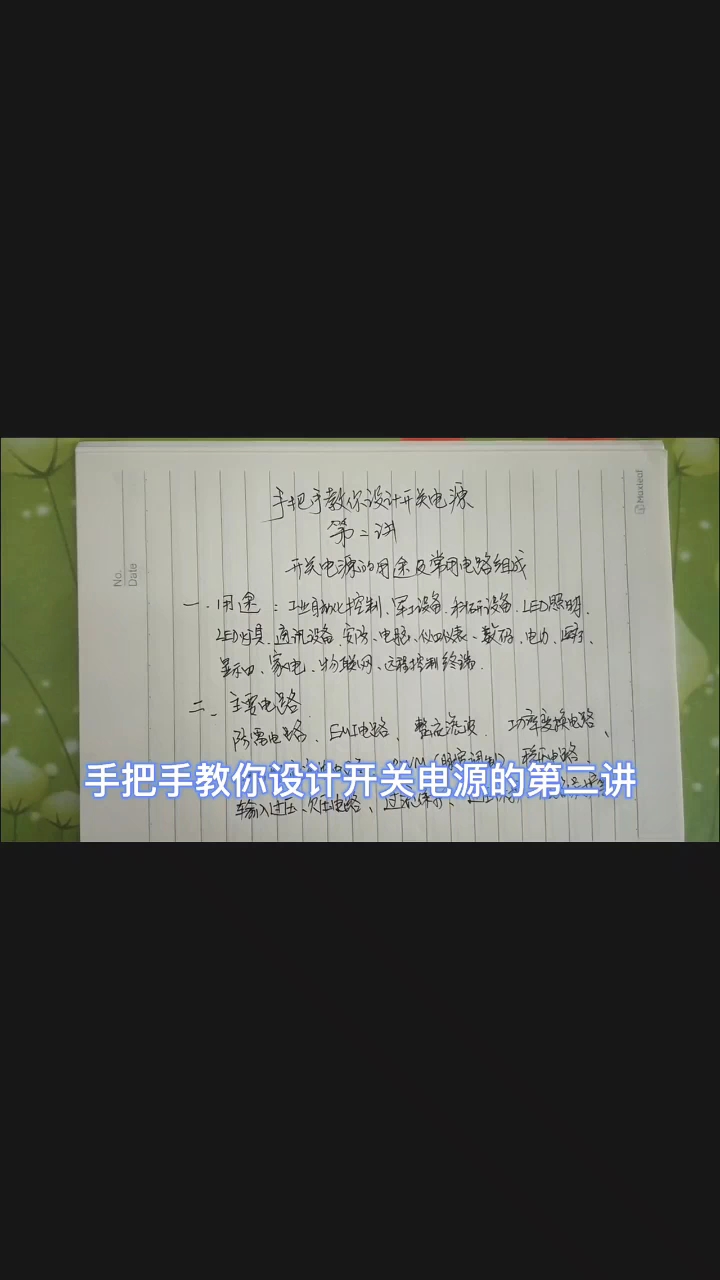 Muxleaf
No.
Date
手把手教你设计开关电源
第二讲
开关电源的用途及常用电路组成
一.用途:工业自动化控制、军工设备、科研设备、LED照明、
LED灯具、通讯设备、安防、电脑、仪器仪表、数码、电力、医疗、
显示、家电、物联网、远程控制终端.
二、主要电路
防雷电路、EMI电路、整流滤波、功率变换电路、
(脉宽调制)、稳压电路
手把手教你设计开关电源的第二讲
输入过压、欠压电路、过流保护、